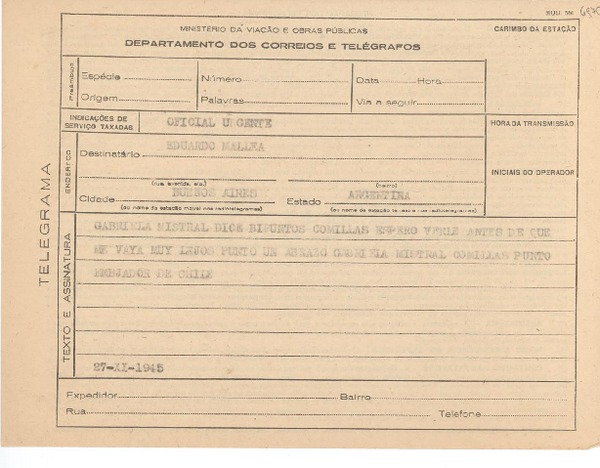 MOD. 5R 6970
MINISTERIO DA VIAÇÃO E OBRAS PÚBLICAS
DEPARTAMENTO DOS CORREIOS E TELÉGRAFOS
CARIMBO DA ESTAÇÃO
Preâmbulo
Espécie Número Data Hora
Origem Palavras Via a seguir
INDICAÇÕES DE SERVIÇO TAXADAS
OFICIAL URGENTE
HORA DA TRANSMISSÃO
ENDEREÇO
EDUARDO MALLEA
Destinatário
INICIAIS DO OPERADOR
(rua, avenida, etc.) (bairro)
BUENOS AIRES ARGENTINA
Cidade Estado
(ou nome da estação movel nos radiotelegramas) (ou nome da estação terrestre nos radiotelegramas)
TELEGRAMA
TEXTO E ASSINATURA
GABRIELA MISTRAL DICE BIPUNTOS COMILLAS ESPERO VERLE ANTES DE QUE
ME VAYA MUY LEJOS PUNTO UN ABRAZO GABRIELA MISTRAL COMILLAS PUNTO
EMBJADOR DE CHILE
27-XI-1945
Expedidor Bairro
Rua Telefone